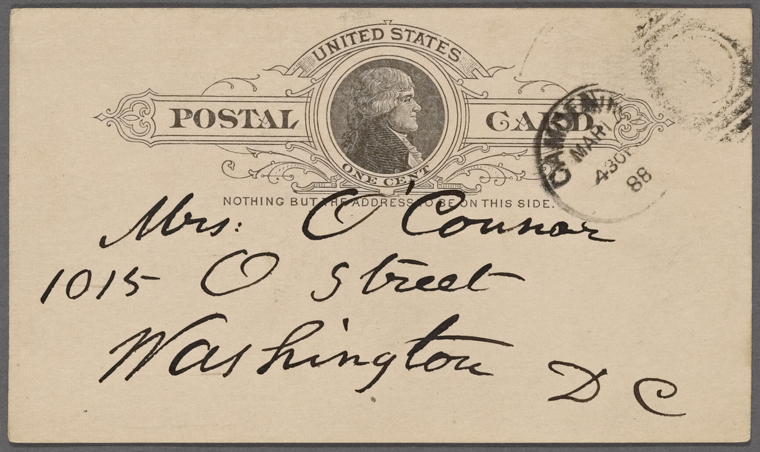 UNITED STATES
POSTAL CARD
ONE CENT
NOTHING BUT THE ADDRESS TO BE ON THIS SIDE.
CAMDEN
MAR
430P
88
Mrs: O'Connor
1015 O Street
Washington D C